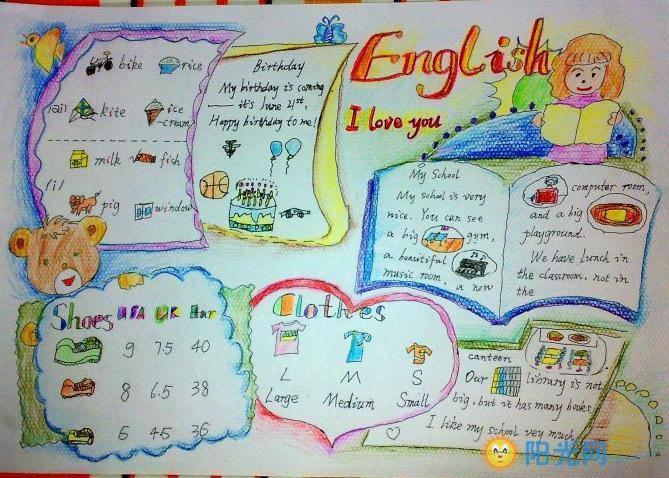 English
I love you
/ai/
bike
rice
kite
ice
-cream
/i/
milk
fish
pig
window
Birthday
My birthday is coming
— it's June 21st,
Happy birthday to me!
My School
My school is very
nice. You can see
a big gym,
a beautiful
music room, a new
computer room,
and a big
playground.
We have lunch in
the classroom, not in
the
canteen
Our library is not
big, but it has many books
I like my school vey much
Shoes USA UK Eur
9 7.5 40
8 6.5 38
6 45 36
Clothes
L M S
Large Medium Small
阳光网